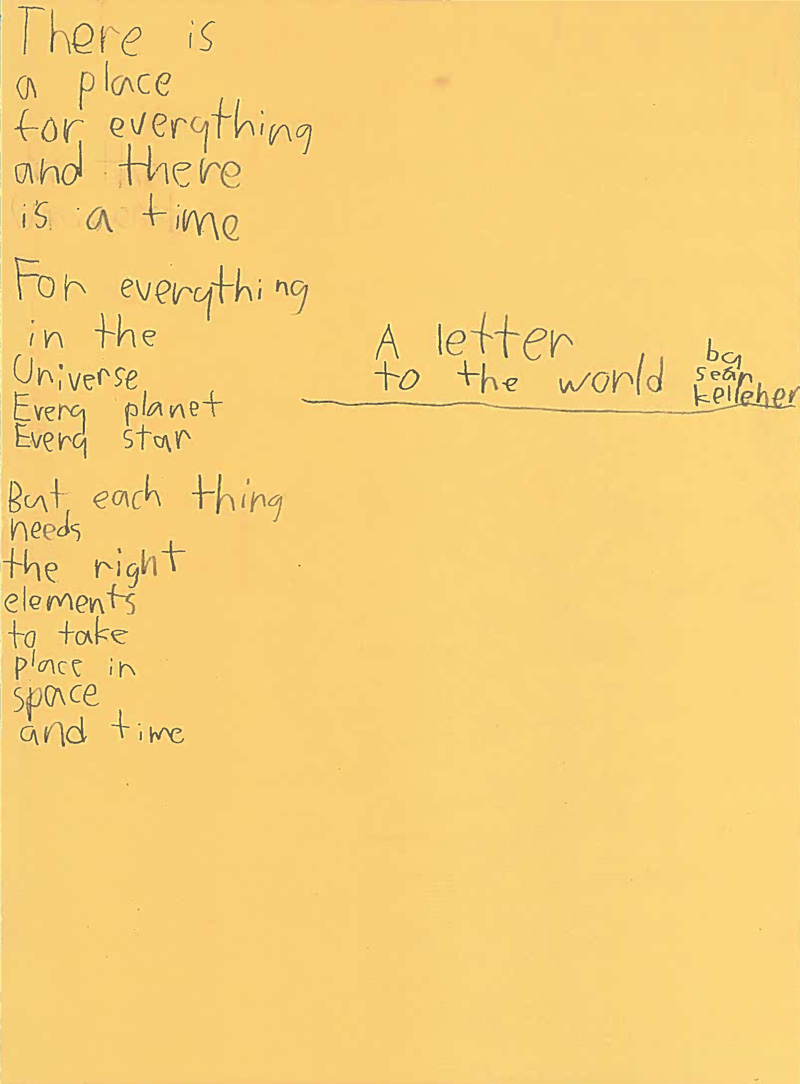 There is
a place
for everything
and there
is a time
For everything
in the
Universe
Every planet
Every star
But each thing
needs
the right
elements
to take
place in
space
and time
A letter
to the world
by
sean
kelleher